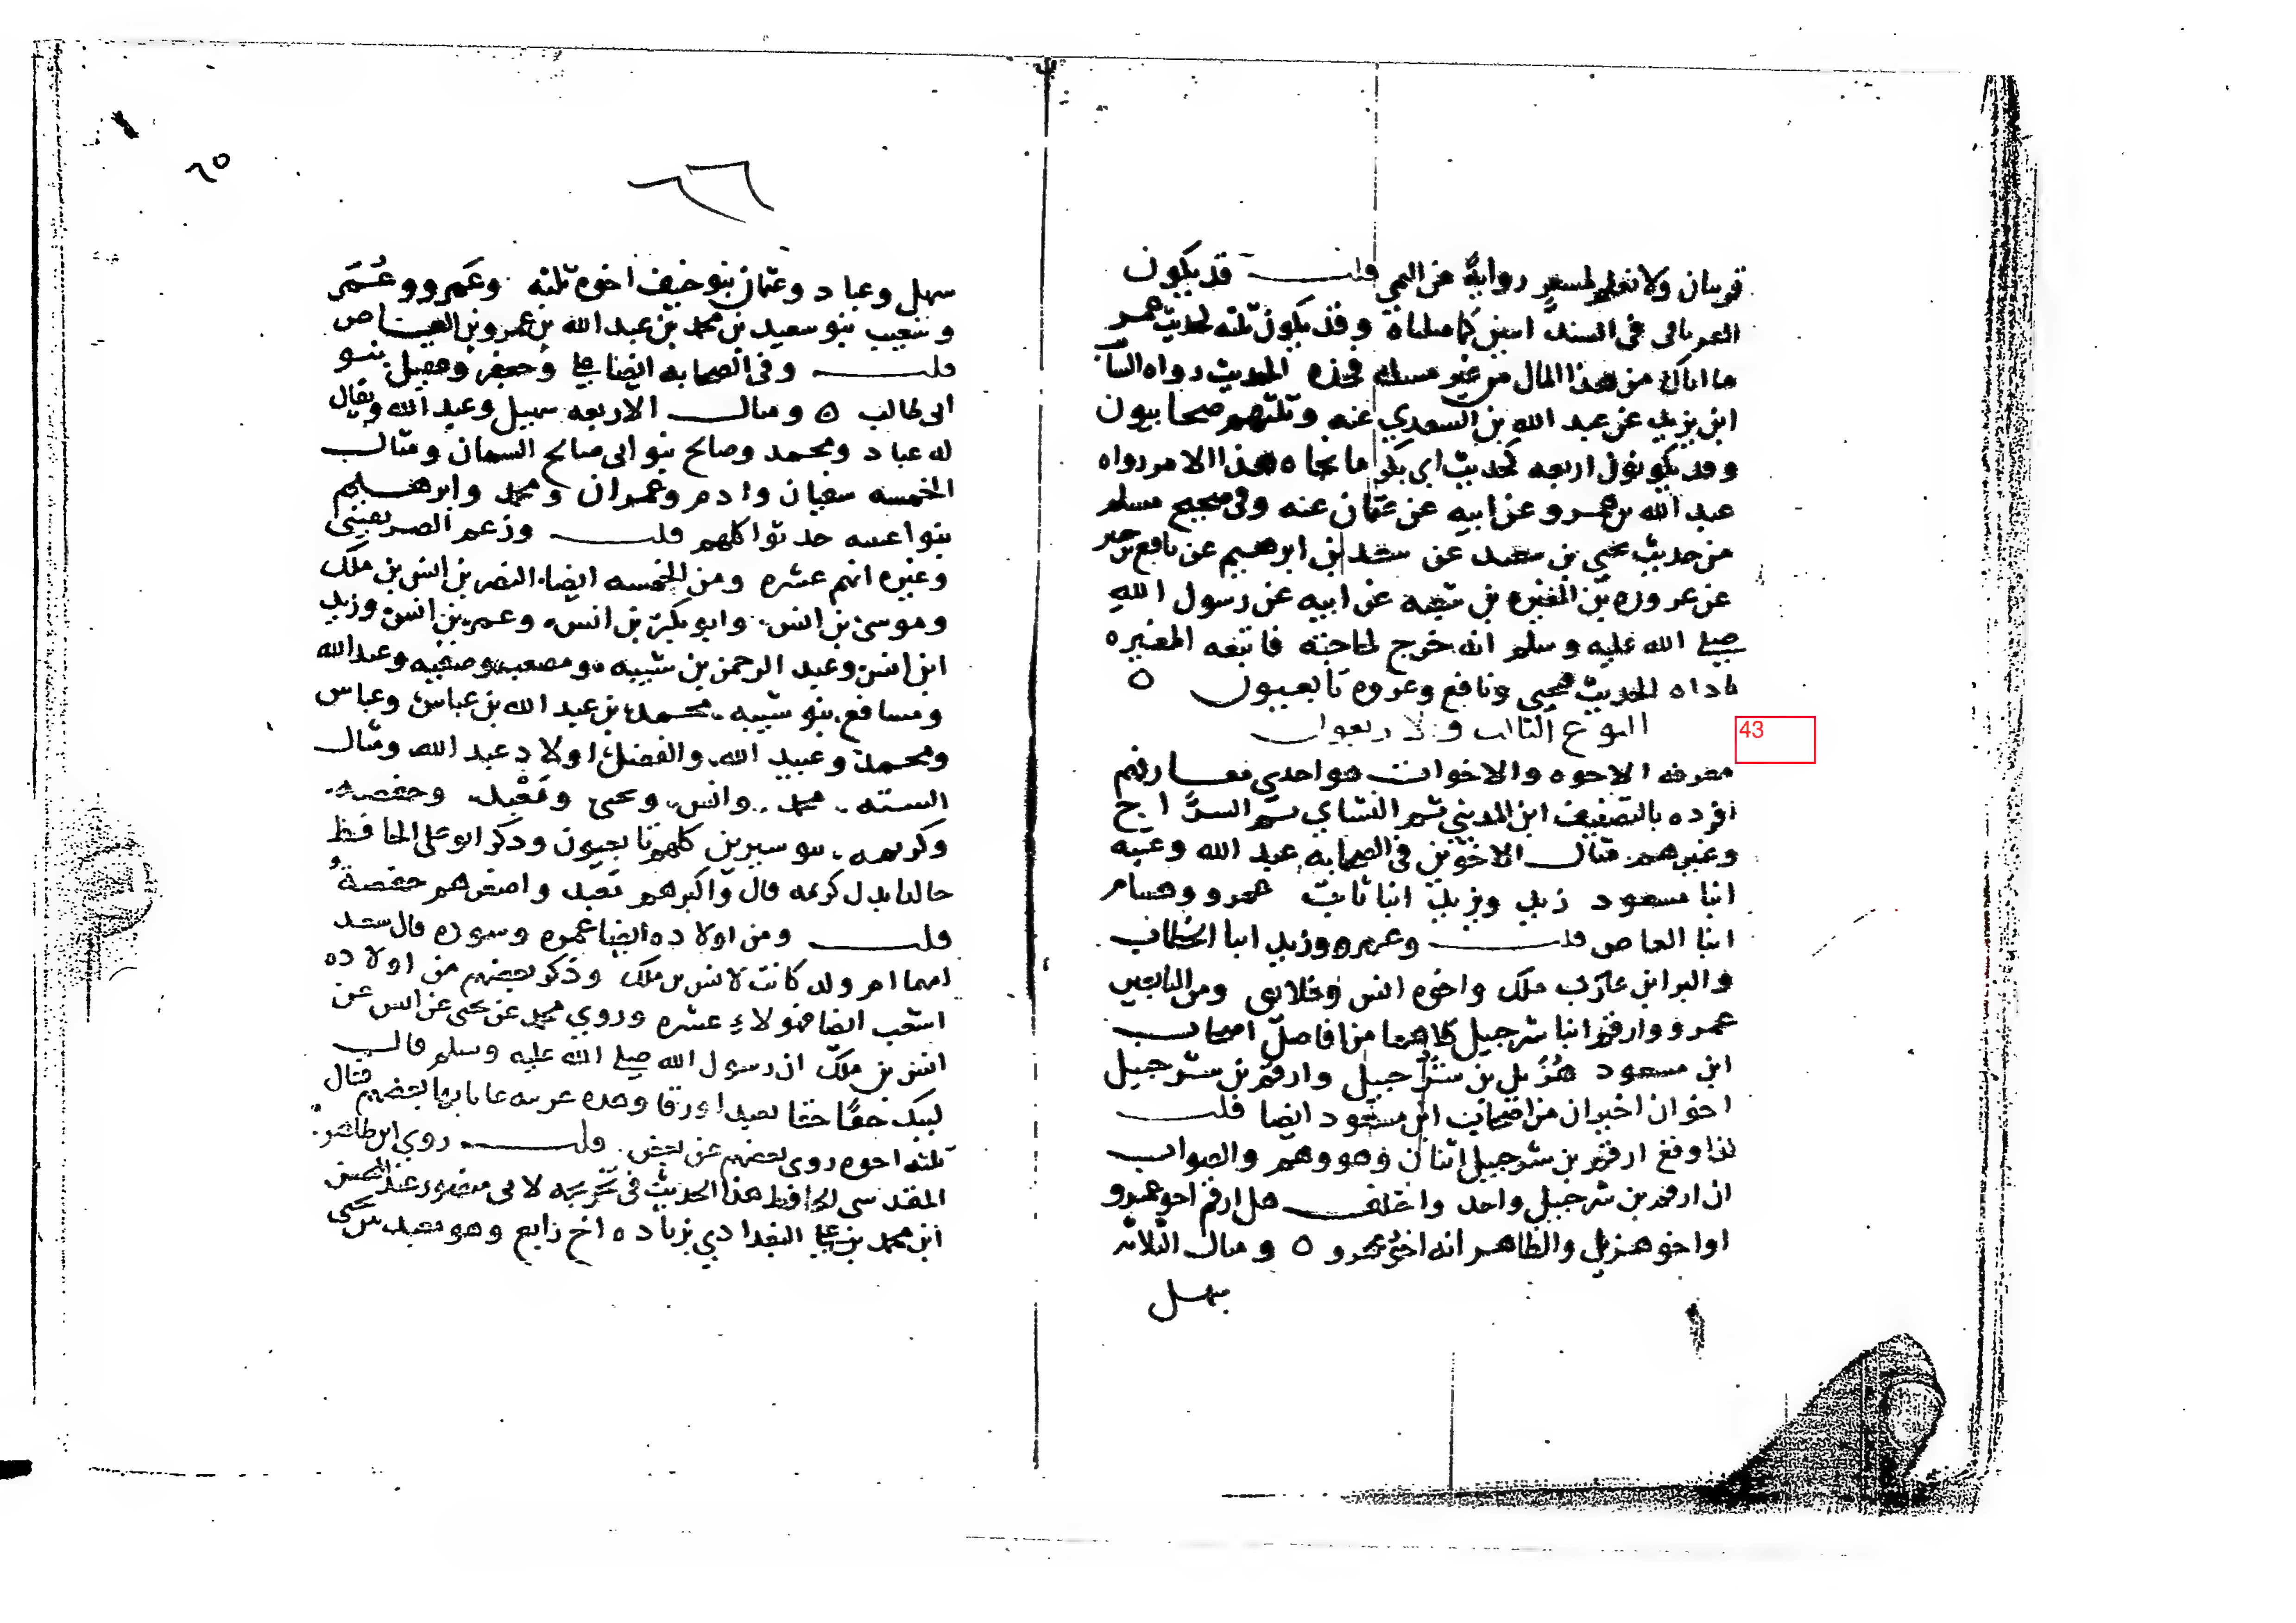 قرينان ولا نعلم لمسعر رواية عن التيمي قلت قد يكون
القرينان في السند اثنين كما مثلناه وقد يكون ثلثه لحديث عمر
ما اتاك من هذا المال من غير مسئله فخذه الحديث رواه السائب
ابن يزيد عن عبد الله بن السعدي عنه وثلثتهم صحابيون
وقد يكونون اربعه لحديث ابي بكر ما نجاه هذا الامر رواه
عبد الله بن عمرو عن ابيه عن عثمان عنه وفي صحيح مسلم
من حديث يحيى بن سعيد عن سعد بن ابرهيم عن نافع بن جبير
عن عروه بن المغيره بن شعبه عن ابيه عن رسول الله
صلى الله عليه وسلم انه خرج لحاجته فاتبعه المغيره
باداه الحديث فيحيى ونافع وعروه تابعيون ٥
النوع الثالث والاربعون
43
معرفه الاخوه والاخوات هو احدى معارفهم
افرده بالتصنيف ابن المديني ثم النساي ثم السراج
وغيرهم مثال الاخوين في الصحابه عبد الله وعتبه
ابنا مسعود زيد ويزيد ابنا ثابت عمرو وهشام
ابنا العاص قلت وعمر وزيد ابنا الخطاب
والبرا ابن عازب ملك واخوه انس وخلائق ومن التابعين
عمرو وارقم ابنا شرحبيل كلاهما من افاضل اصحاب
ابن مسعود هزيل بن شرحبيل وارقم بن شرحبيل
اخوان اخيران من اصحاب ابن مسعود ايضا قلت
لذا وقع ارقم بن شرحبيل اثنان وهو وهم والصواب
ان ارقم بن شرحبيل واحد واختلف هل ارقم اخو عمرو
او اخو هزيل والظاهر انه اخو عمرو ٥ ومثال الثلاثه
سهل
٦٥
٦٦
سهل وعباد وعثمان بنو حنيف اخوه ثلثه وعمرو وعمر
وشعيب بنو سعيد بن محمد بن عبد الله بن عمرو بن العاص
قلت وفي الصحابه ايضا علي وجعفر وعقيل بنو
ابي طالب ٥ ومثال الاربعه سهيل وعبد الله ويقال
له عباد ومحمد وصالح بنو ابي صالح السمان ومثال
الخمسه سفيان وادم وعمران ومحمد وابرهيم
بنو عيينه حدثوا كلهم قلت وزعم الصريفيني
وغيره انهم عشره ومن الخمسه ايضا النضر بن انس بن ملك
وموسى بن انس وابو بكر بن انس وعمر بن انس وزيد
ابن انس وعبد الرحمن بن شيبه ومصعب وصفيه وعبد الله
ومسافع بنو شيبه محمد بن عبد الله بن عباس وعباس
ومحمد وعبيد الله والفضل اولاد عبد الله ومثال
السته محمد وانس ويحيى ومعبد وحفصه
وكريمه بنو سيرين كلهم تابعيون وذكر ابو علي الحافظ
خالدا بدل كريمه قال واكبرهم معبد واصغرهم حفصة
قلت ومن اولاده ايضا عمره وسوده قال سعد
امهما ام ولد كانت لانس بن ملك وذكر بعضهم من اولاده
اشعب ايضا فهولاء عشره وروي محمد عن يحيى عن انس عن
انس بن ملك ان رسول الله صلى الله عليه وسلم قال
لبيك حقا حقا تعبدا ورقا وهذه غريبه عايا بها بعضهم فقال
ثلثه اخوه روى بعضهم عن بعض قلت روي ابن طاهر
المقدسي الحافظ هذا الحديث في تخريجه لابي منصور عبد المحسن
ابن محمد بن علي البغدادي بزياده اخ رابع وهو معبد